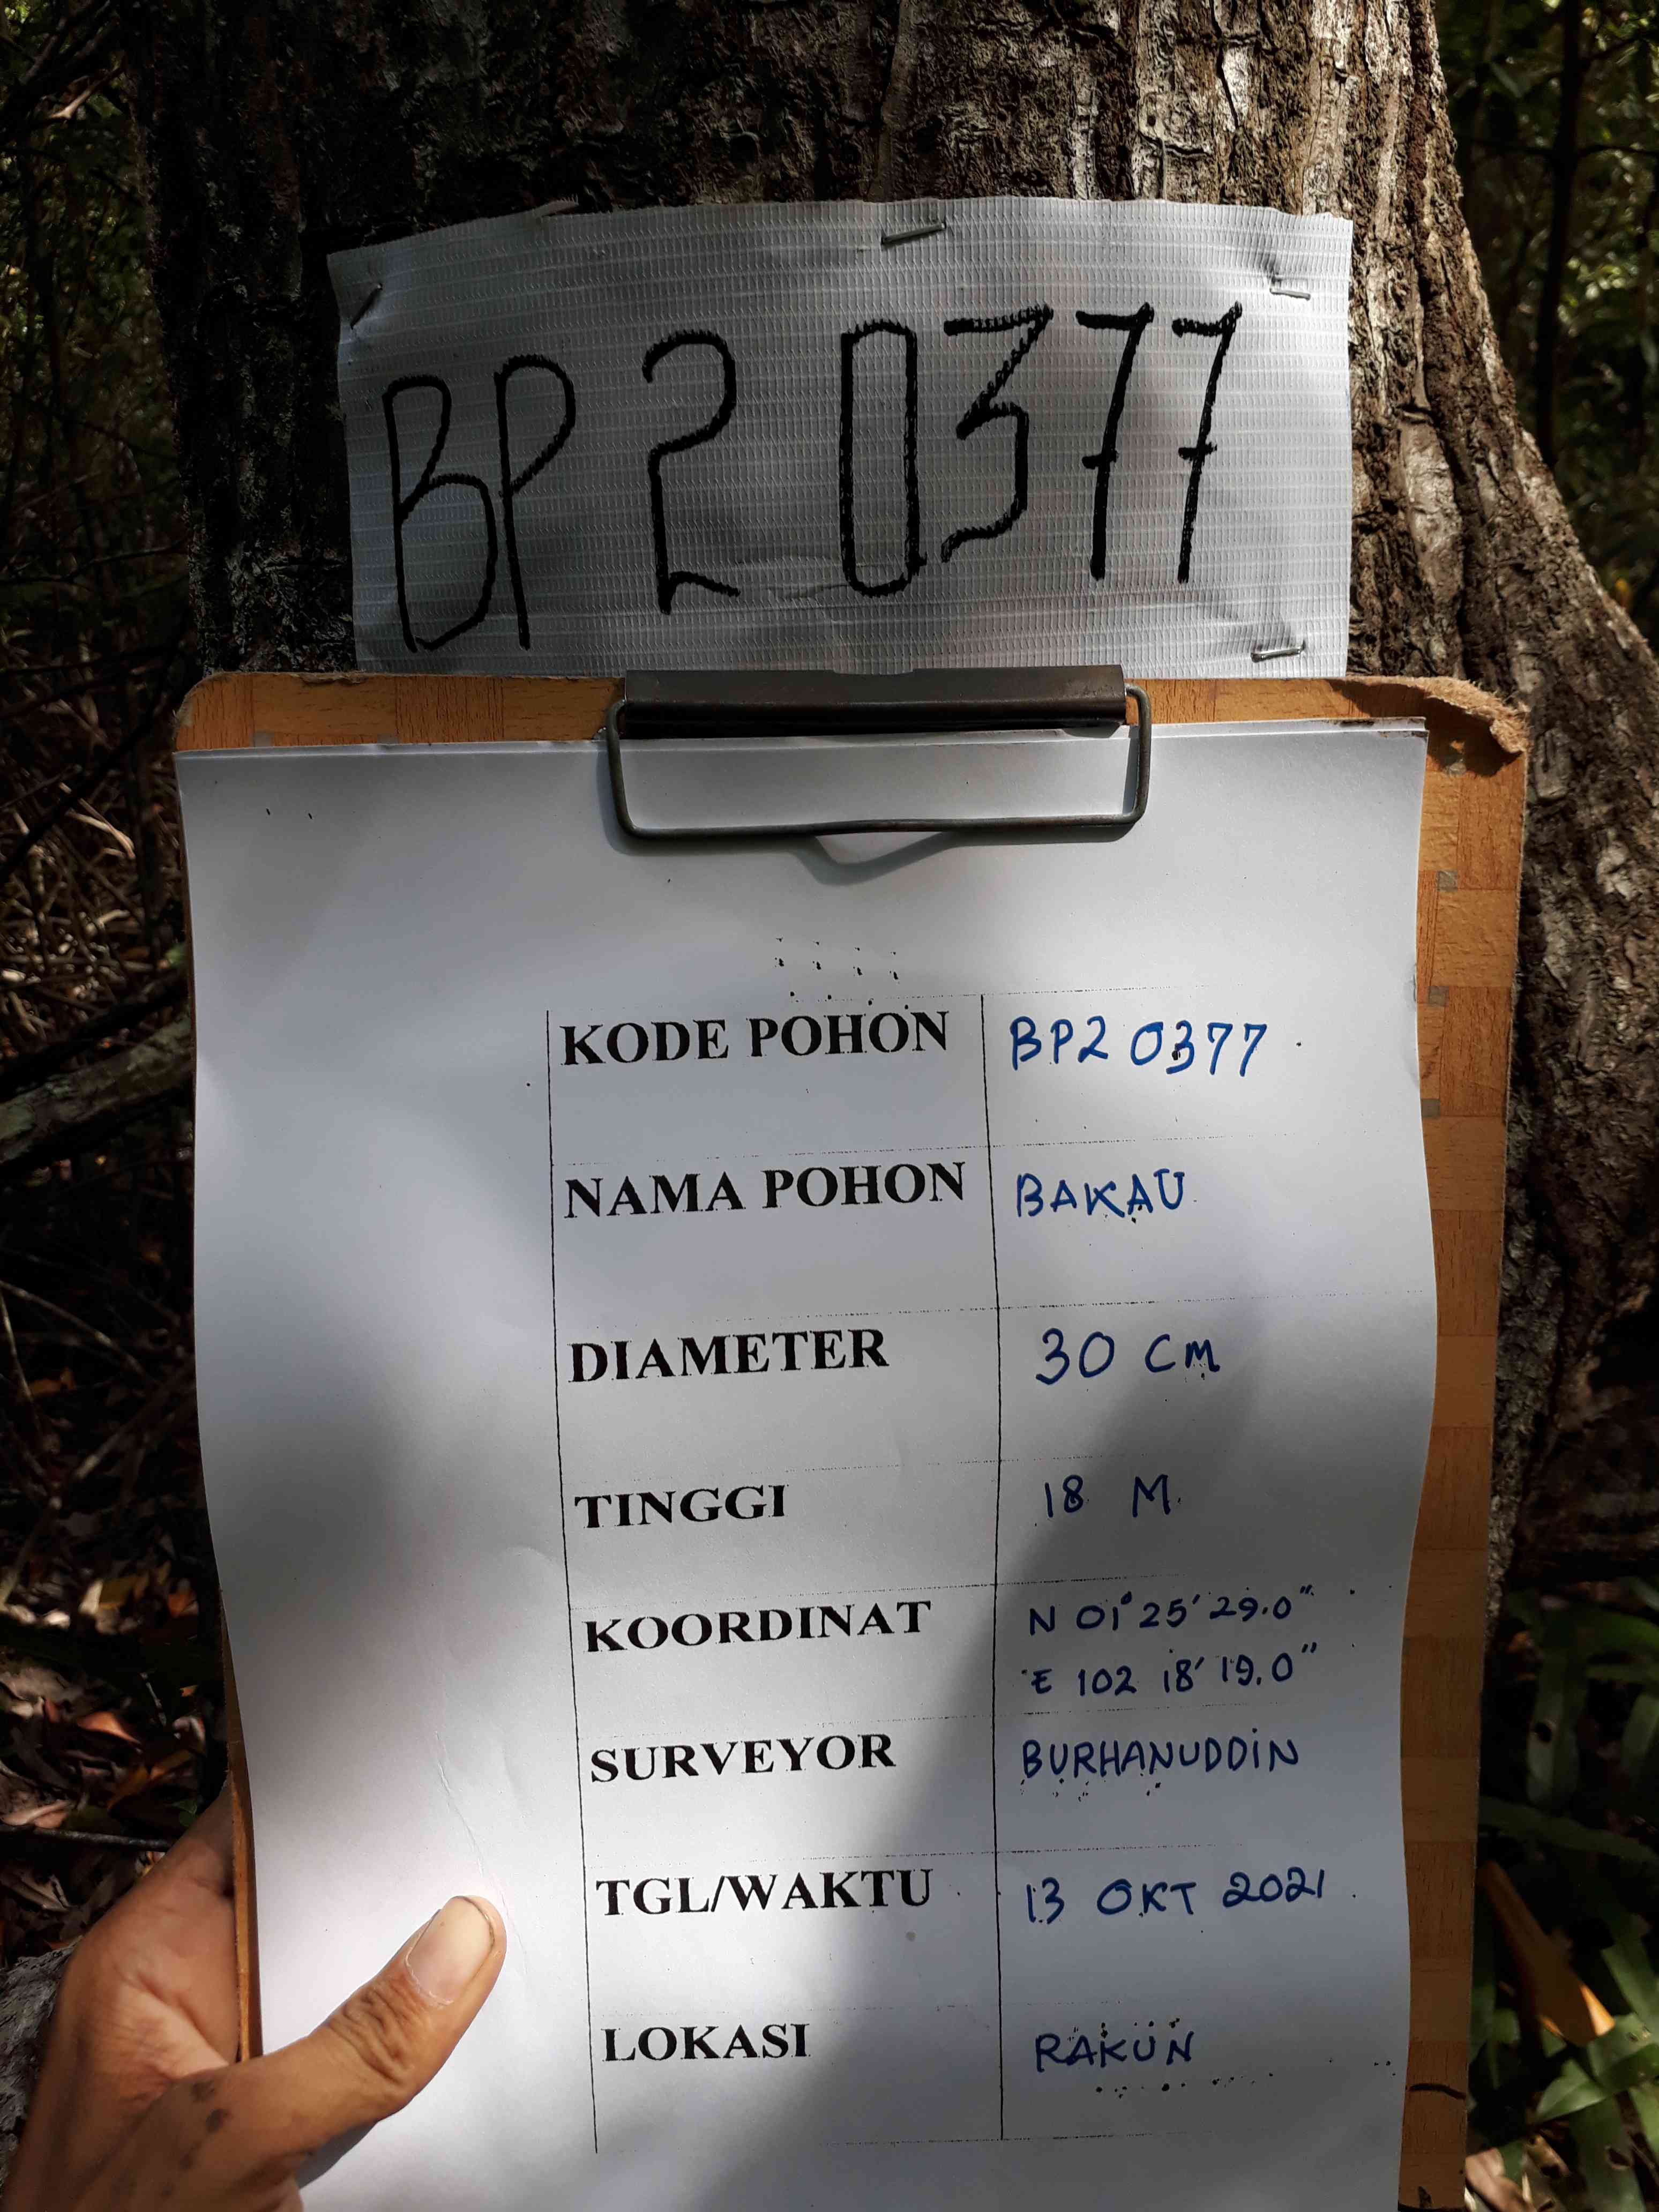 BP 2 0377
KODE POHON BP2 0377
NAMA POHON BAKAU
DIAMETER 30 CM
TINGGI 18 M
KOORDINAT N 01° 25' 29.0"
E 102 18' 19.0"
SURVEYOR BURHANUDDIN
TGL/WAKTU 13 OKT 2021
LOKASI RAKUN